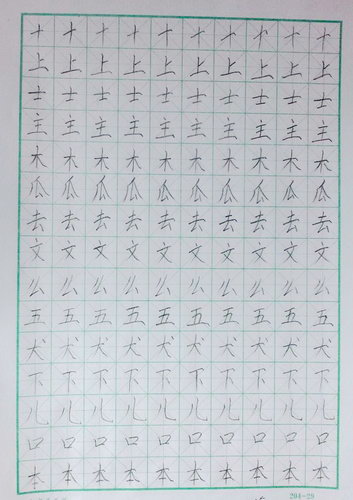 十十十十十十十十十十
上上上上上上上上上上
士士士士士士士士士士
主主主主主主主主主主
木木木木木木木木木木
瓜瓜瓜瓜瓜瓜瓜瓜瓜瓜
去去去去去去去去去去
文文文文文文文文文文
么么么么么么么么么么
五五五五五五五五五五
犬犬犬犬犬犬犬犬犬犬
下下下下下下下下下下
儿儿儿儿儿儿儿儿儿儿
口口口口口口口口口口
本本本本本本本本本本